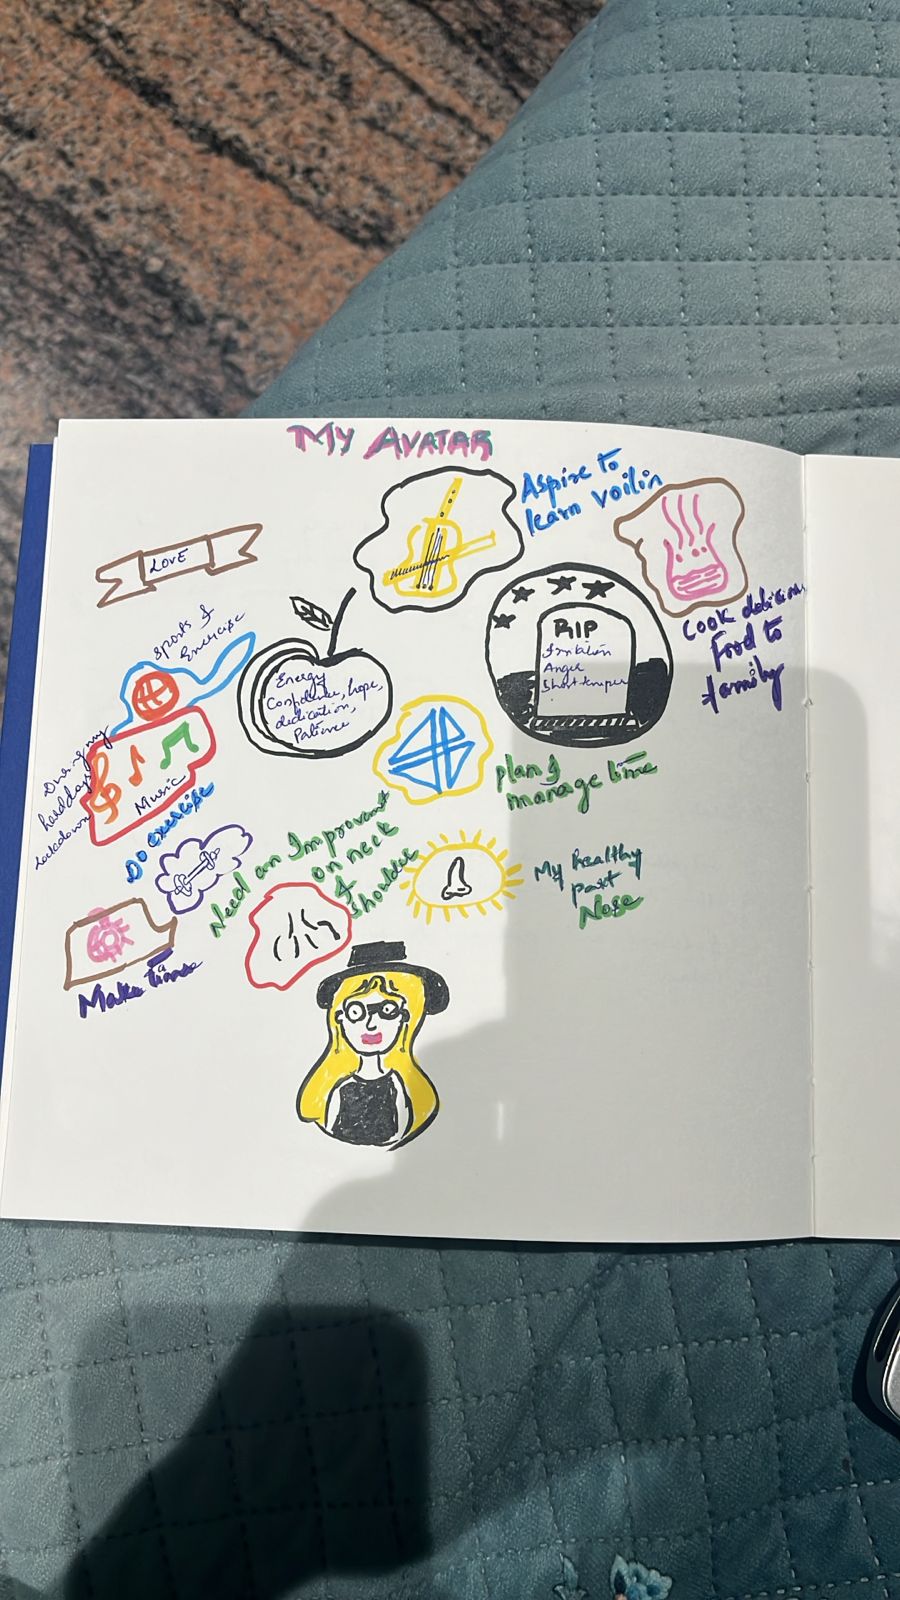 MY AVATAR
Aspire to
learn voilin
LOVE
sports &
Exercise
RIP
Anger
Short temper
cook delicious
Food to
family
Energy
Confidence, hope,
dedication,
Patience
During my
hard days
lockdown
Music
plan &
manage time
Do exercise
Need an Improvment
on neck
&
shoulder
My healthy
part
Nose
Make